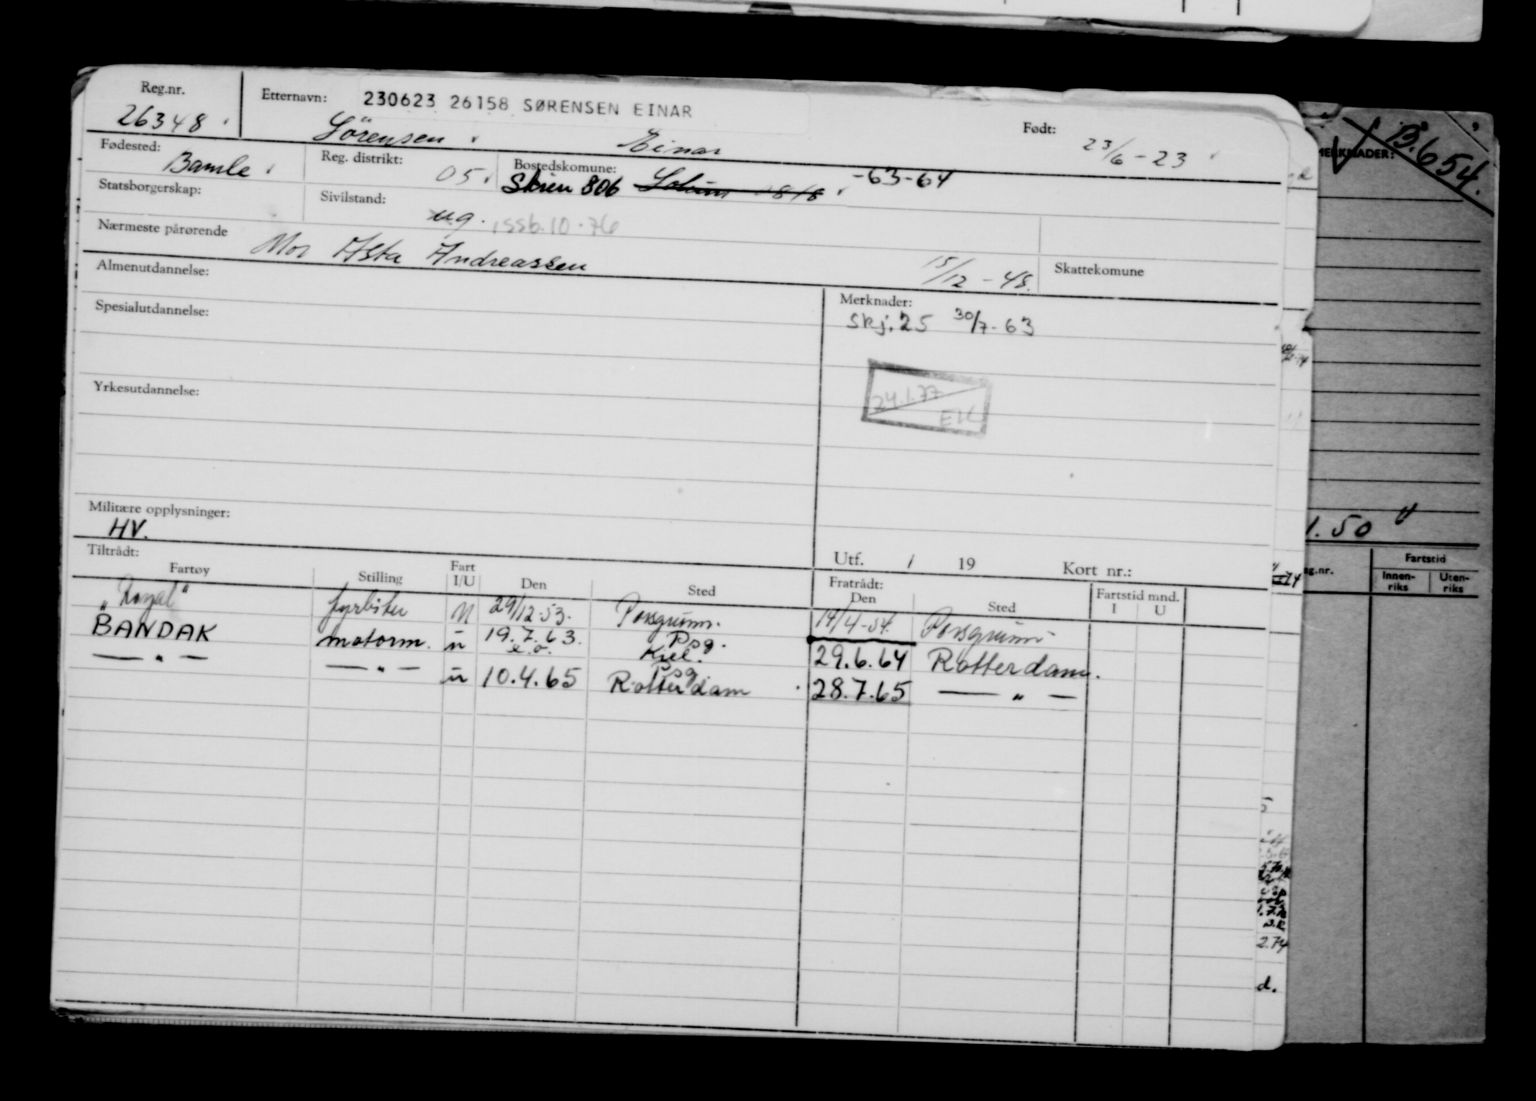 Reg.nr. Etternavn: 230623 26158 SØRENSEN EINAR Født:
26348 Sörensen Einar 23/6-23
Fødested: Bamle Reg. distrikt: 05 Bostedskomune: Skien 806 Solum 818 -63-64
Statsborgerskap: Sivilstand: ug.
Nærmeste pårørende Mor Asta Andreassen 15/12-48. Skattekomune
Almenutdannelse: Merknader:
Skj. 25 30/7-63
Spesialutdannelse:
24.1.77
EK
Yrkesutdannelse:
Militære opplysninger:
HV.
Tiltrådt: Utf. / 19 Kort nr.:
Fartøy Stilling Fart I/U Den Sted Fratrådt: Den Sted Fartstid mnd. I U
"Loyal" fyrböter 29/12-53. Porsgrunn. 14/4-54. Porsgrunn
BANDAK motorm. ü 19.7.63. Psg. Kiel. 29.6.64 Rotterdam.
— " — — " — ü 10.4.65 Psg Rotterdam 28.7.65 — " —
MERKNADER:
B.654.
1.50
Fartstid
Innen-riks Uten-riks